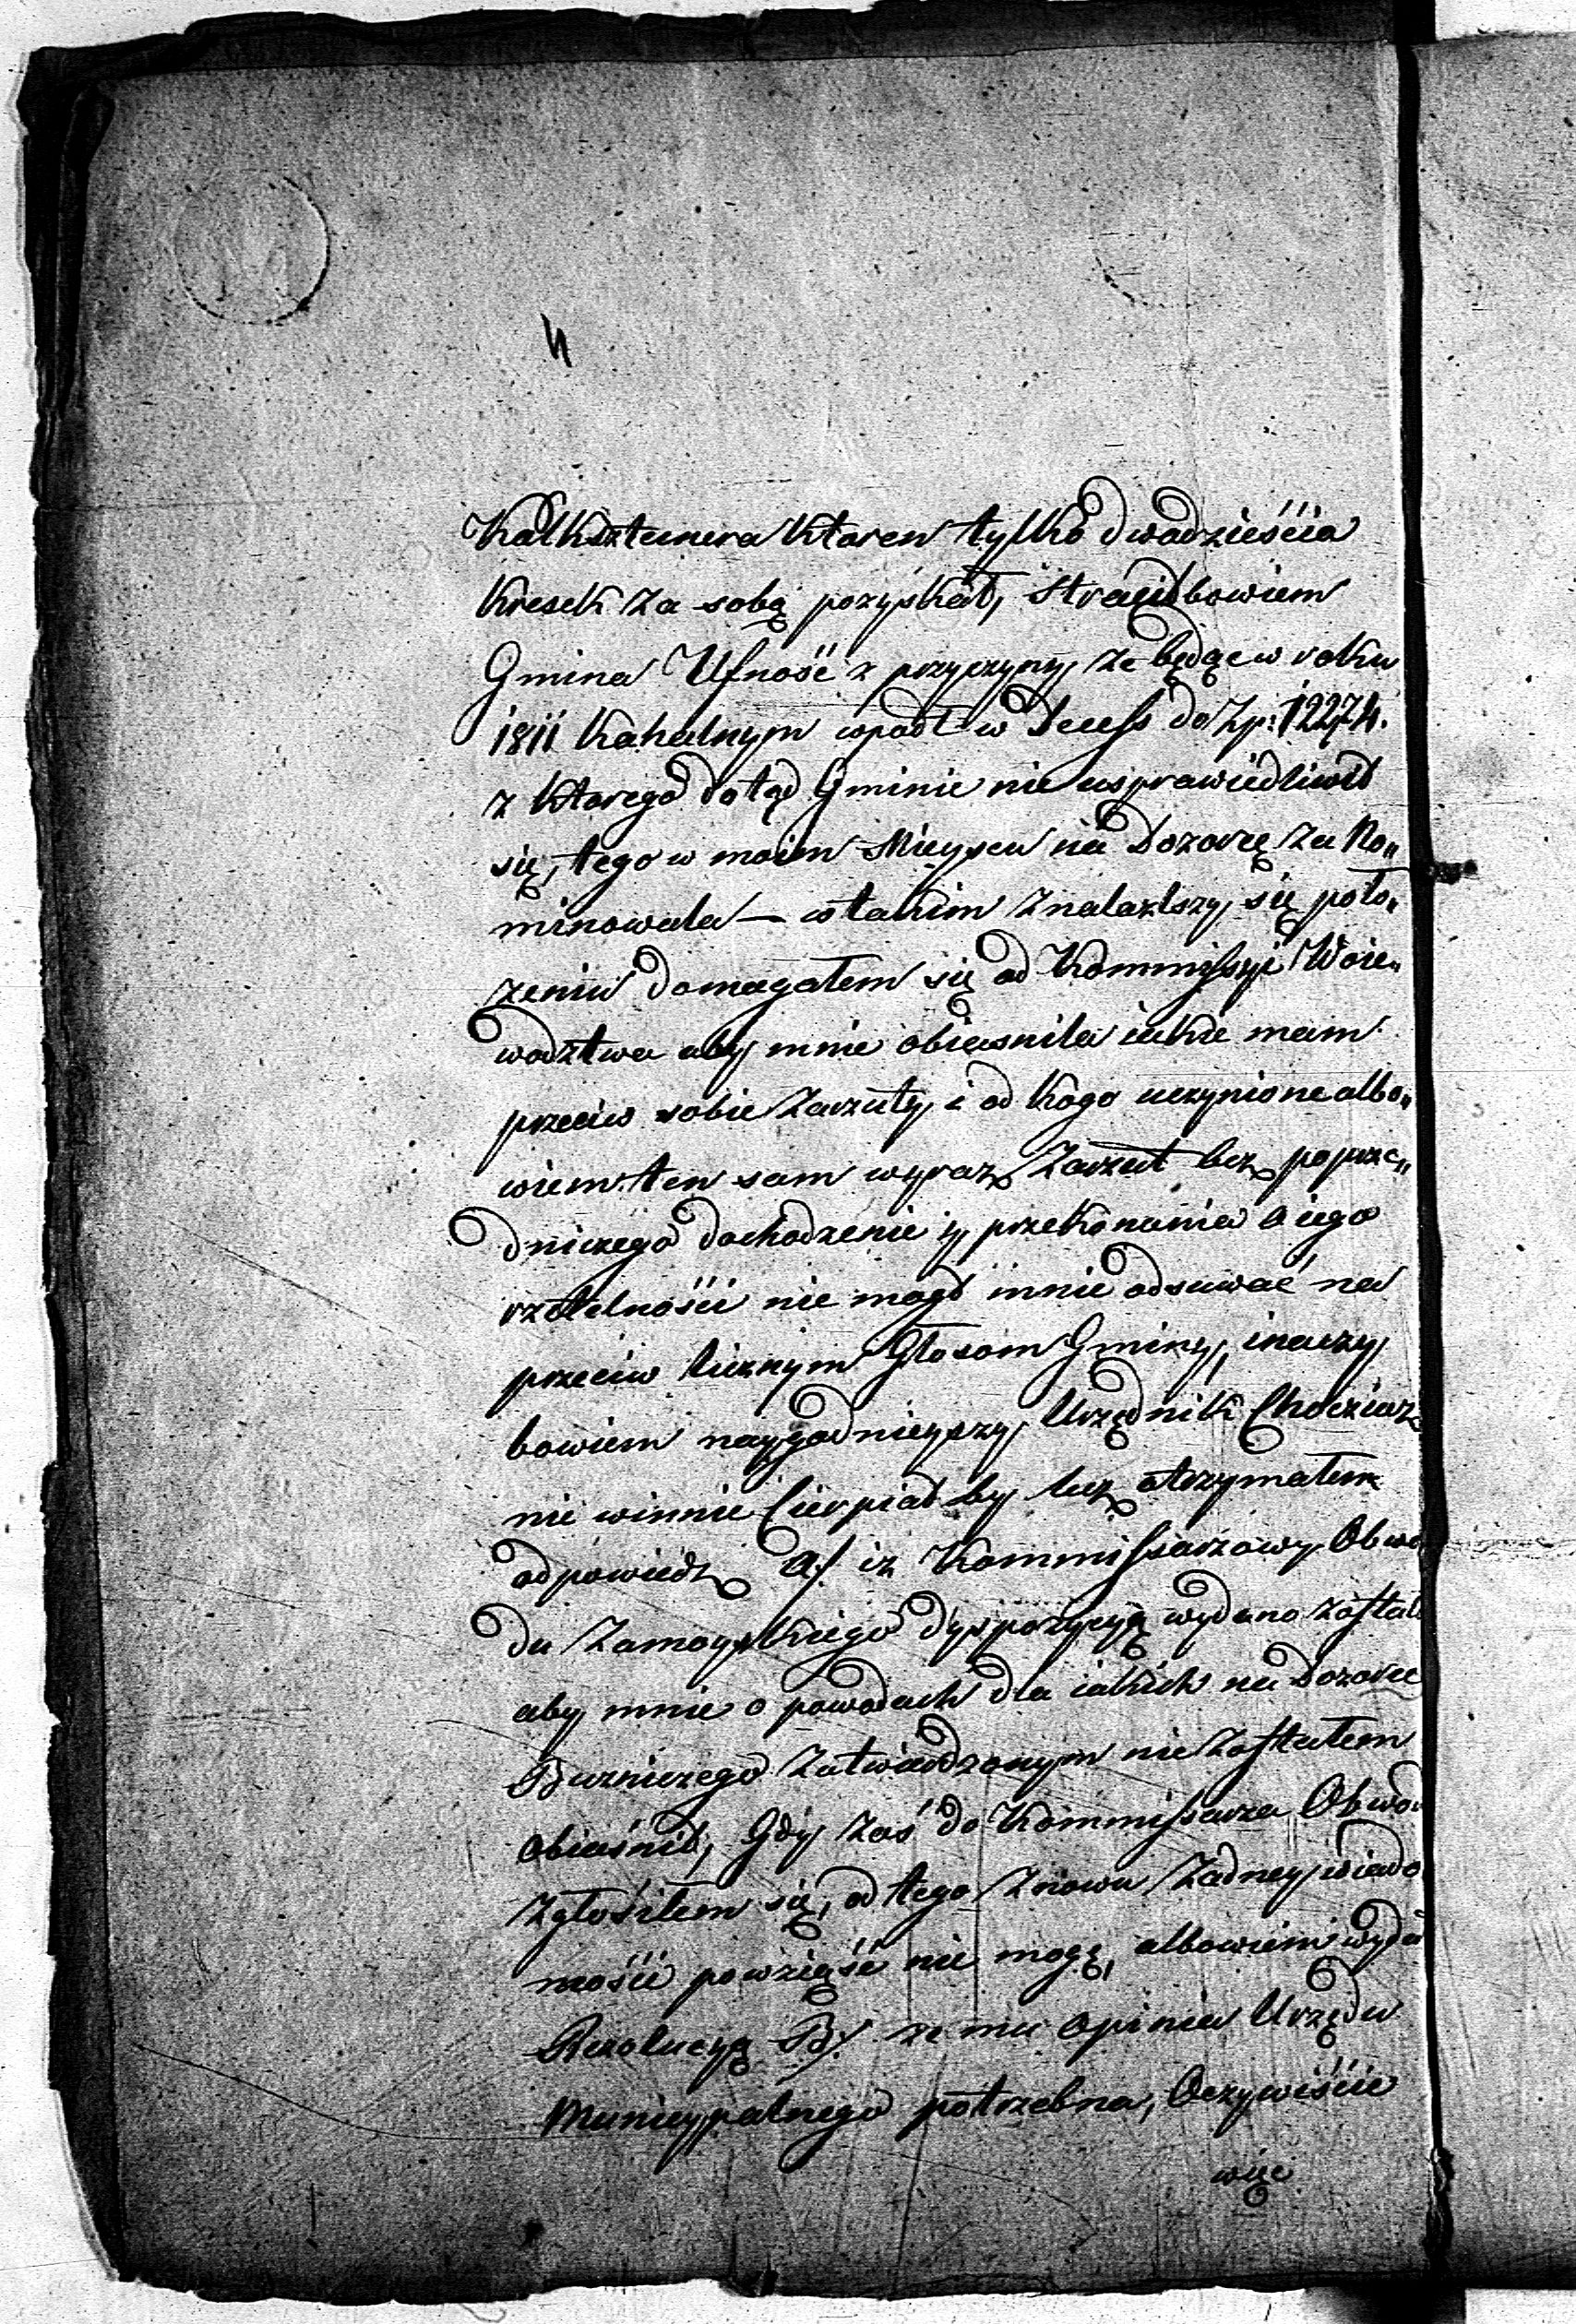 4
Kalksztemera Ktoren tylko dwadzieścia
Kresek za sobą pozyskał, stracił bowiem
Gmina Ufność z przyczyny, że będąc w roku
1811 Kahalnym wpadł w Decess do Zp: 12274.
z Ktorego dotąd Gminie nie usprawiedliwił
się, tego w moim Mieyscu na Dozorcę za No„
minowała — w takim znalazłszy się poło„
żeniu domagałem się od Kommissyi Woie„
wodztwa aby mnie obiasniła iakie mam
przeciw sobie Zarzuty i od kogo uczynione albo„
wiem ten sam wyraz Zarzut bez poprze„
dniczego dochodzenie y przekonania o iego
rzetelności nie mogł mnie odsuwać na
przeciw licznym Głosom Gminy, inaczy
bowiem naygodnieyszy Urzędnik Chociarz
nie winnie Cierpiał by lecz otrzymałem
odpowiedz A/. iz Kommissarzowy Obwo
du Zamoyskiego dyspozycyą wydano został
aby mnie o powodach dla iakich na Dozorce
Buzniczego Zatwierdzonym nie Zostałem
obiaśnił, Gdy zaś do Kommissarza Obwod
zgłosiłem się, od tego znowu Żadney wiado
mości powziąść nie mogę, albowiem wydał
Rezolucyą B/. ze mu opinia Urzędu
Municypalnego potrzebna, Oczywiście
więc